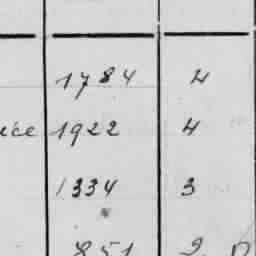 1784 4
1922 4
1334 3
851 2